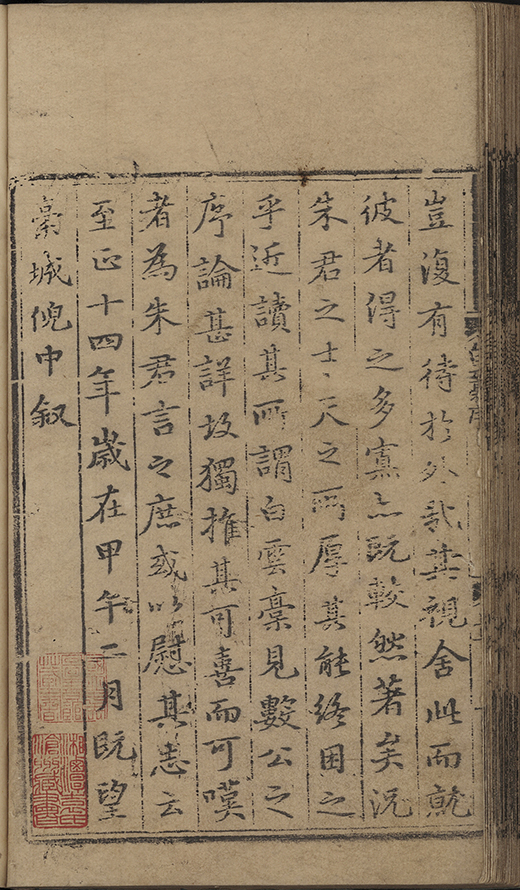 豈復有待於外哉其視舍此而就
彼者得之多寡亦既較然著矣況
朱君之士天之所厚其能終困之
乎近讀其所謂白雲稾見數公之
序論甚詳故獨推其可喜而可嘆
者為朱君言之庶或以慰其志云
至正十四年歲在甲午二月既望
藁城倪中叙